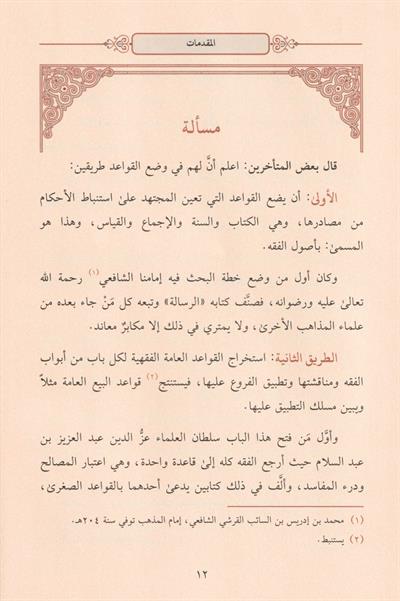 المقدمات
مسألة
قال بعض المتأخرين: اعلم أنَّ لهم في وضع القواعد طريقين:
الأولى: أن يضع القواعد التي تعين المجتهد على استنباط الأحكام
من مصادرها، وهي الكتاب والسنة والإجماع والقياس، وهذا هو
المسمىٰ: بأصول الفقه.
وكان أول من وضع خطة البحث فيه إمامنا الشافعي(١) رحمة الله
تعالىٰ عليه ورضوانه، فصنَّف كتابه «الرسالة» وتبعه كل مَنْ جاء بعده من
علماء المذاهب الأخرىٰ، ولا يمتري في ذلك إلا مكابرٌ معاند.
الطريق الثانية: استخراج القواعد العامة الفقهية لكل باب من أبواب
الفقه ومناقشتها وتطبيق الفروع عليها، فيستنتج(٢) قواعد البيع العامة مثلاً
ويبين مسلك التطبيق عليها.
وأوَّل مَن فتح هذا الباب سلطان العلماء عزُّ الدين عبد العزيز بن
عبد السلام حيث أرجع الفقه كله إلىٰ قاعدة واحدة، وهي اعتبار المصالح
ودرء المفاسد، وألَّف في ذلك كتابين يدعىٰ أحدهما بالقواعد الصغرىٰ،
(١) محمد بن إدريس بن السائب القرشي الشافعي، إمام المذهب توفي سنة ٢٠٤هـ.
(٢) يستنبط.
١٢